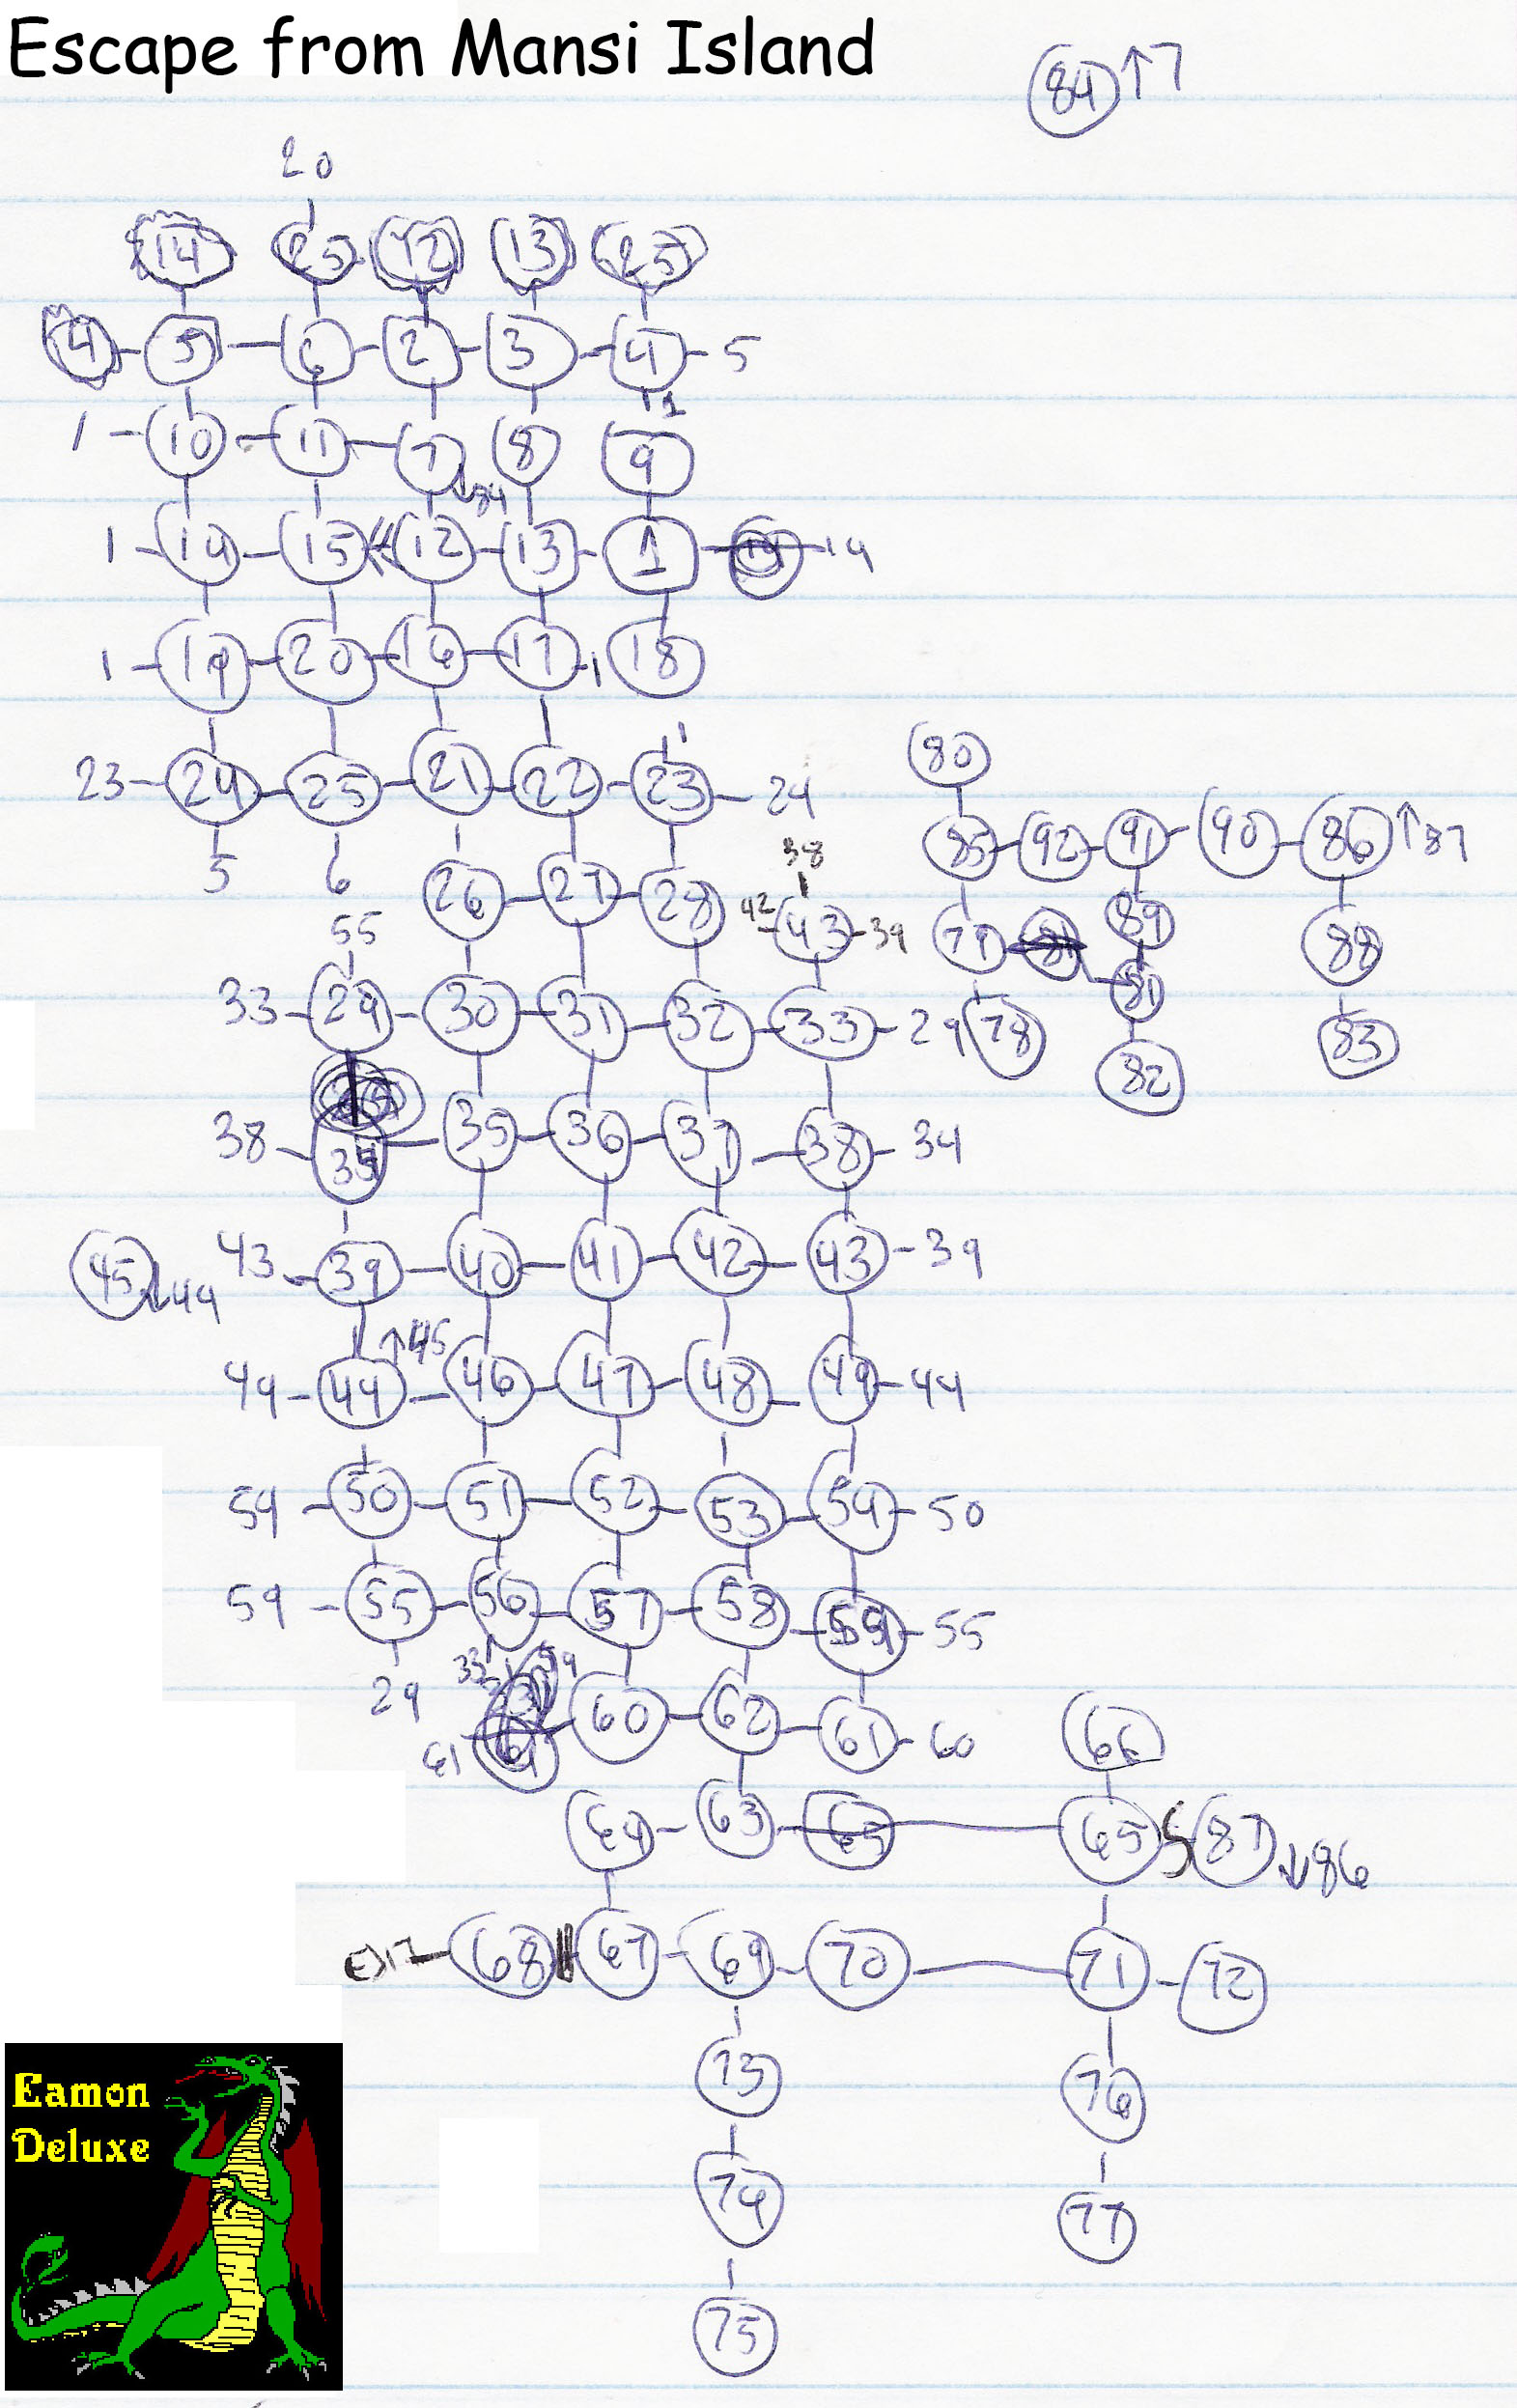 Escape from Mansi Island
84 ↑7
20
14 25 12 13 25
4 5 6 2 3 4 5
1 10 11 7 8 9
↓84
1 14 15 12 13 1 14
1 19 20 16 17 1 18
23 24 25 21 22 23 24
5 6
80
85 92 91 90 86 ↑87
26 27 28
38
42 43 39
79 89 88
81
55
33 29 30 31 32 33 29
78 82 83
38 34 35 36 37 38 34
45 ↓44
43 39 40 41 42 43 39
↑45
49 44 46 47 48 49 44
54 50 51 52 53 54 50
59 55 56 57 58 59 55
29
33
61 60 62 61 60
66
64 63 65 65 87 ↓86
EXIT 68 67 69 70 71 72
73 76
74 77
75
Eamon
Deluxe